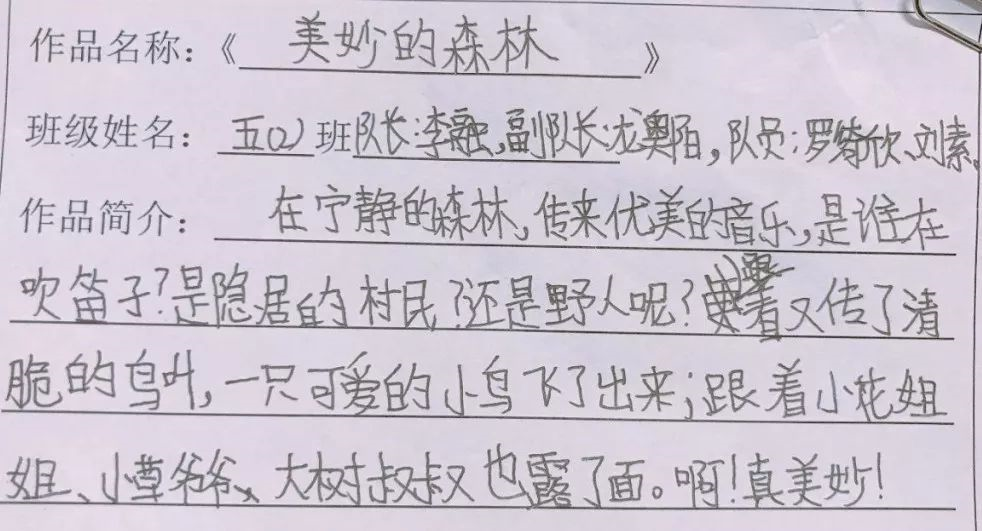 作品名称：《美妙的森林》
班级姓名：五(2)班队长:李融,副队长:龙奥陌,队员:罗欣、刘素、
作品简介：在宁静的森林,传来优美的音乐,是谁在
吹笛子?是隐居的村民?还是野人呢?着又传了清
脆的鸟叶,一只可爱的小鸟飞了出来;跟着小花姐
姐、小草爷爷、大树叔叔也露了面。啊!真美妙!